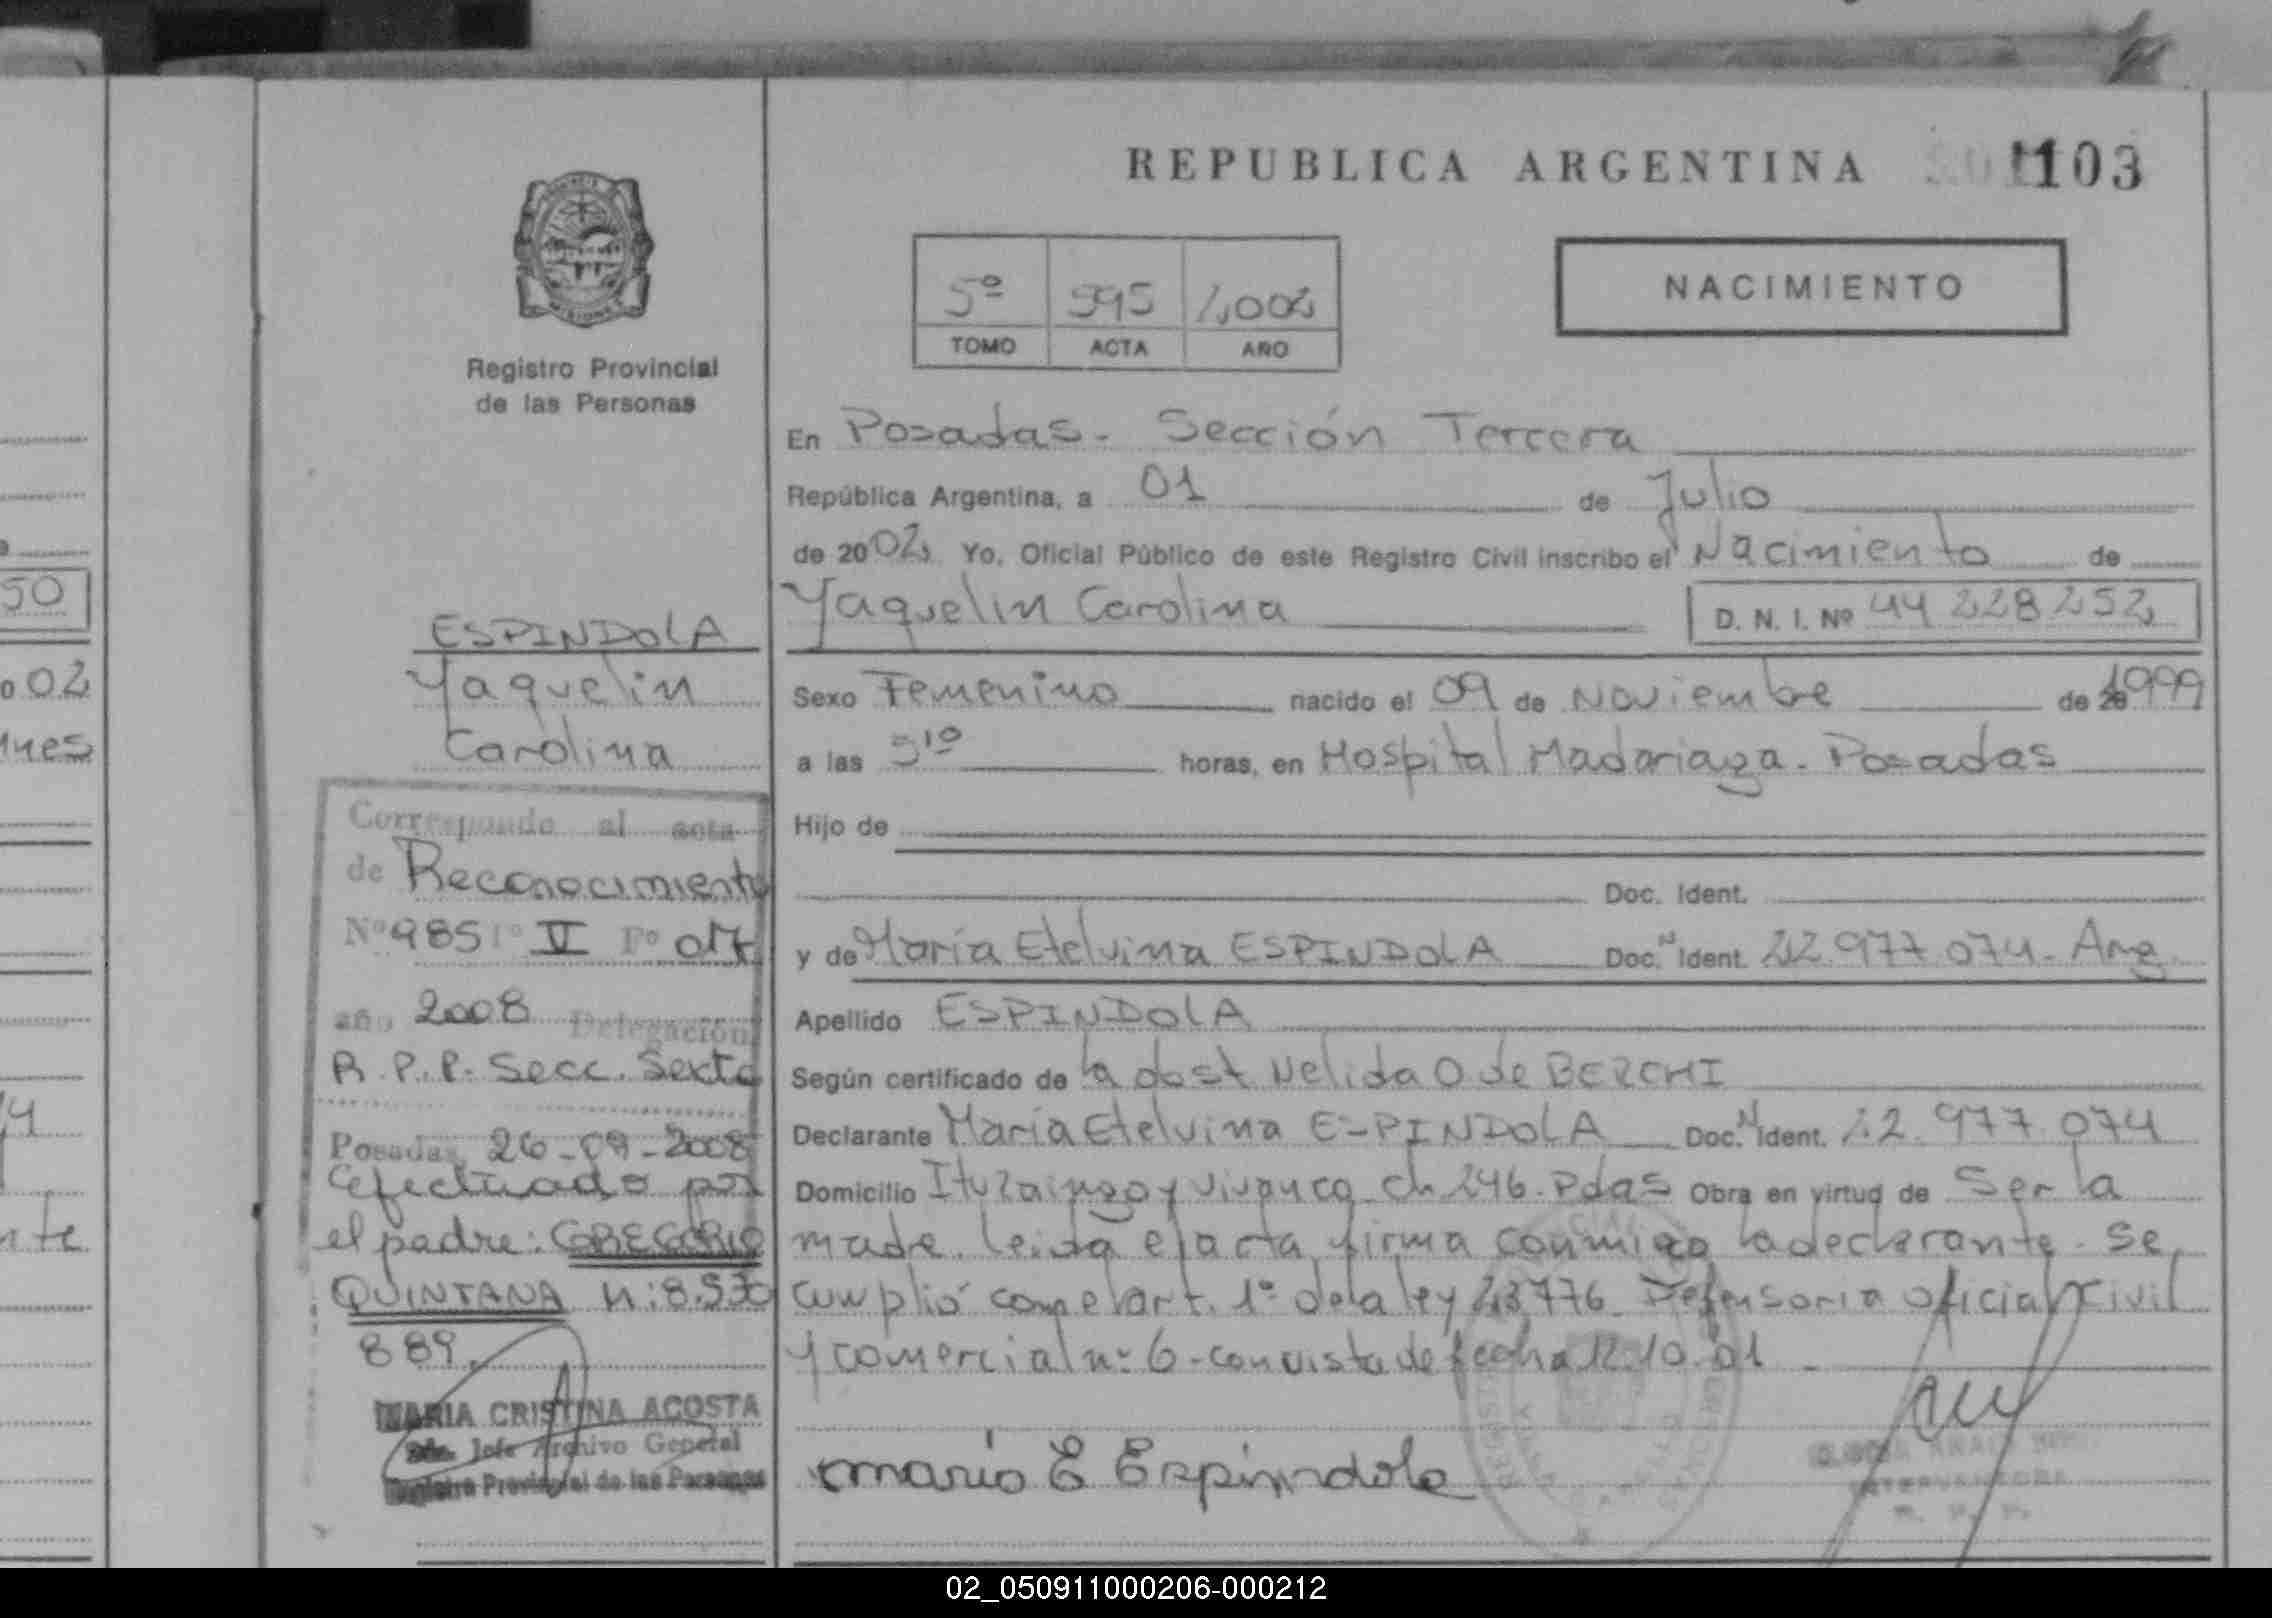 REPUBLICA ARGENTINA 103
5º 595 2002
TOMO ACTA AÑO
NACIMIENTO
Registro Provincial
de las Personas
ESPINDOLA
Yaquelin
Carolina
Corresponde al acta
de Reconocimiento
Nº 985 Tº V Fº 017
año 2008 Delegación
R.P.P. Secc. Sexta
Posadas, 26-09-2008
Efectuado por
el padre: GREGORIO
QUINTANA n: 8.530
889.
MARIA CRISTINA ACOSTA
Jefe Archivo General
Registro Provincial de las Personas
En Posadas. Sección Tercera
República Argentina, a 01 de Julio
de 2002 Yo, Oficial Público de este Registro Civil inscribo el Nacimiento de
Yaquelin Carolina D. N. I. Nº 44 228 252
Sexo Femenino nacido el 09 de Noviembre de 1999
a las 5¹⁰ horas, en Hospital Madariaga. Posadas
Hijo de
Doc. Ident.
y de María Etelvina ESPINDOLA Doc. N Ident. 22.977.074. Arg
Apellido ESPINDOLA
Según certificado de la dost Nelida O de BERCHI
Declarante María Etelvina ESPINDOLA Doc. N Ident. 22.977.074
Domicilio Ituzaingo y Vivanco ch 246. Pdas Obra en virtud de Ser la
madre. Leida el acta, firma conmigo la declarante. Se
cumplió con el art. 1º de la ley 23776. Defensoria oficial Civil
y comercial nº 6 - con vista de fecha 12.10.01
maria E Espindola
50
02
ante
02_050911000206-000212